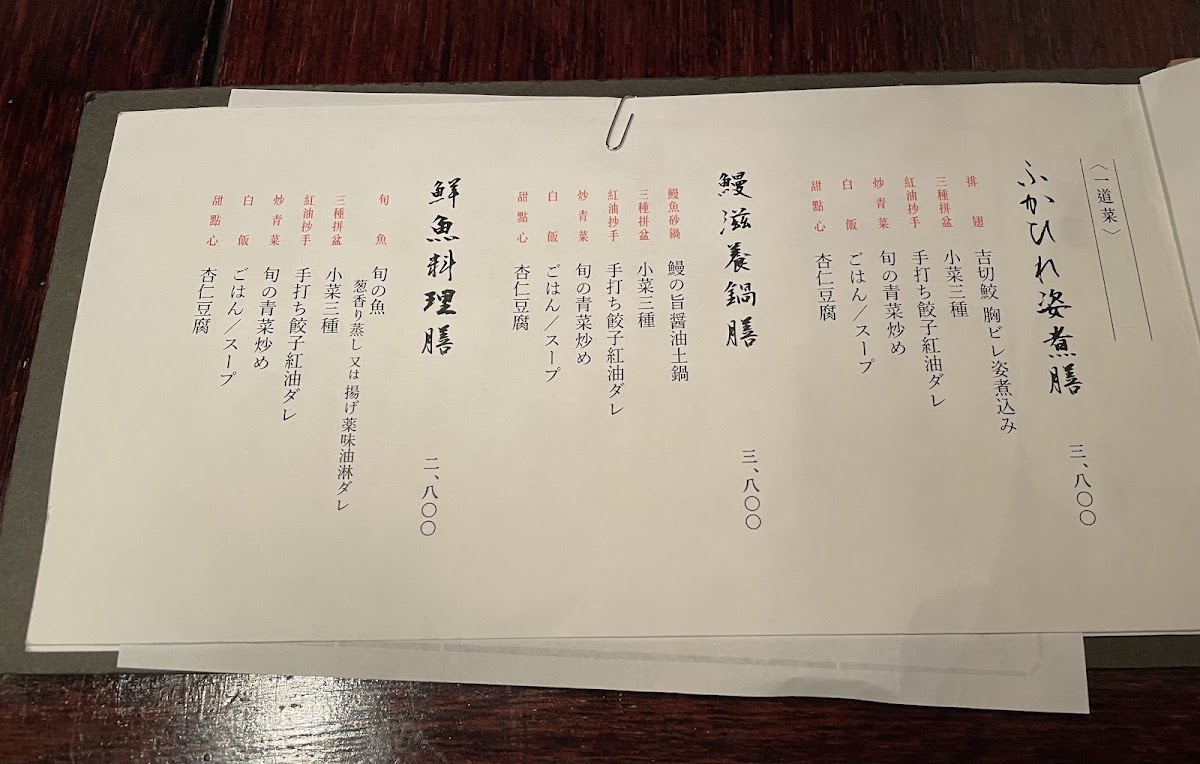 〈一道菜〉
ふかひれ姿煮膳
三、八〇〇
排翅
吉切鮫 胸ビレ姿煮込み
三種拼盆
小菜三種
紅油抄手
手打ち餃子紅油ダレ
炒青菜
旬の青菜炒め
白飯
ごはん／スープ
甜點心
杏仁豆腐
鰻滋養鍋膳
三、八〇〇
鰻魚砂鍋
鰻の旨醤油土鍋
三種拼盆
小菜三種
紅油抄手
手打ち餃子紅油ダレ
炒青菜
旬の青菜炒め
白飯
ごはん／スープ
甜點心
杏仁豆腐
鮮魚料理膳
二、八〇〇
旬魚
旬の魚
葱香り蒸し 又は 揚げ薬味油淋ダレ
三種拼盆
小菜三種
紅油抄手
手打ち餃子紅油ダレ
炒青菜
旬の青菜炒め
白飯
ごはん／スープ
甜點心
杏仁豆腐